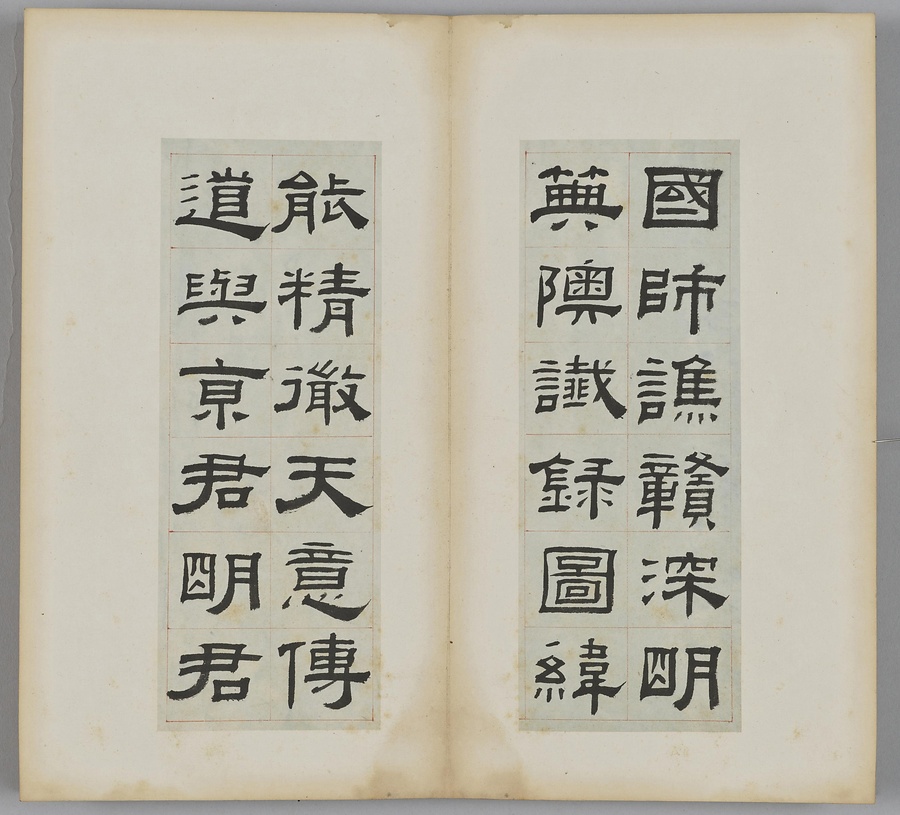 國師譙贛深明
典隩讖錄圖緯
能精微天意傳
道與亰君明君